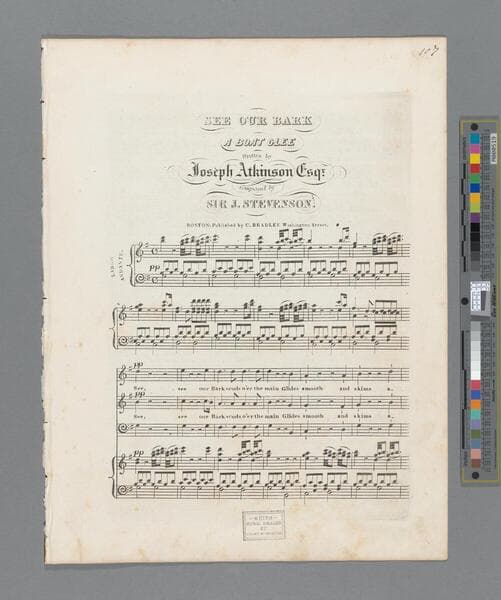 107
SEE OUR BARK
A BOAT GLEE
Written by
Joseph Atkinson Esqr.
Composed by
SIR J. STEVENSON.
BOSTON: Published by C. BRADLEE Washington Street.
LARGO
ANDANTE.
pp
pp
See, see our Bark scuds o'er the main Glides smooth and skims a_
pp
See, see our Bark scuds o'er the main Glides smooth and skims a_
pp